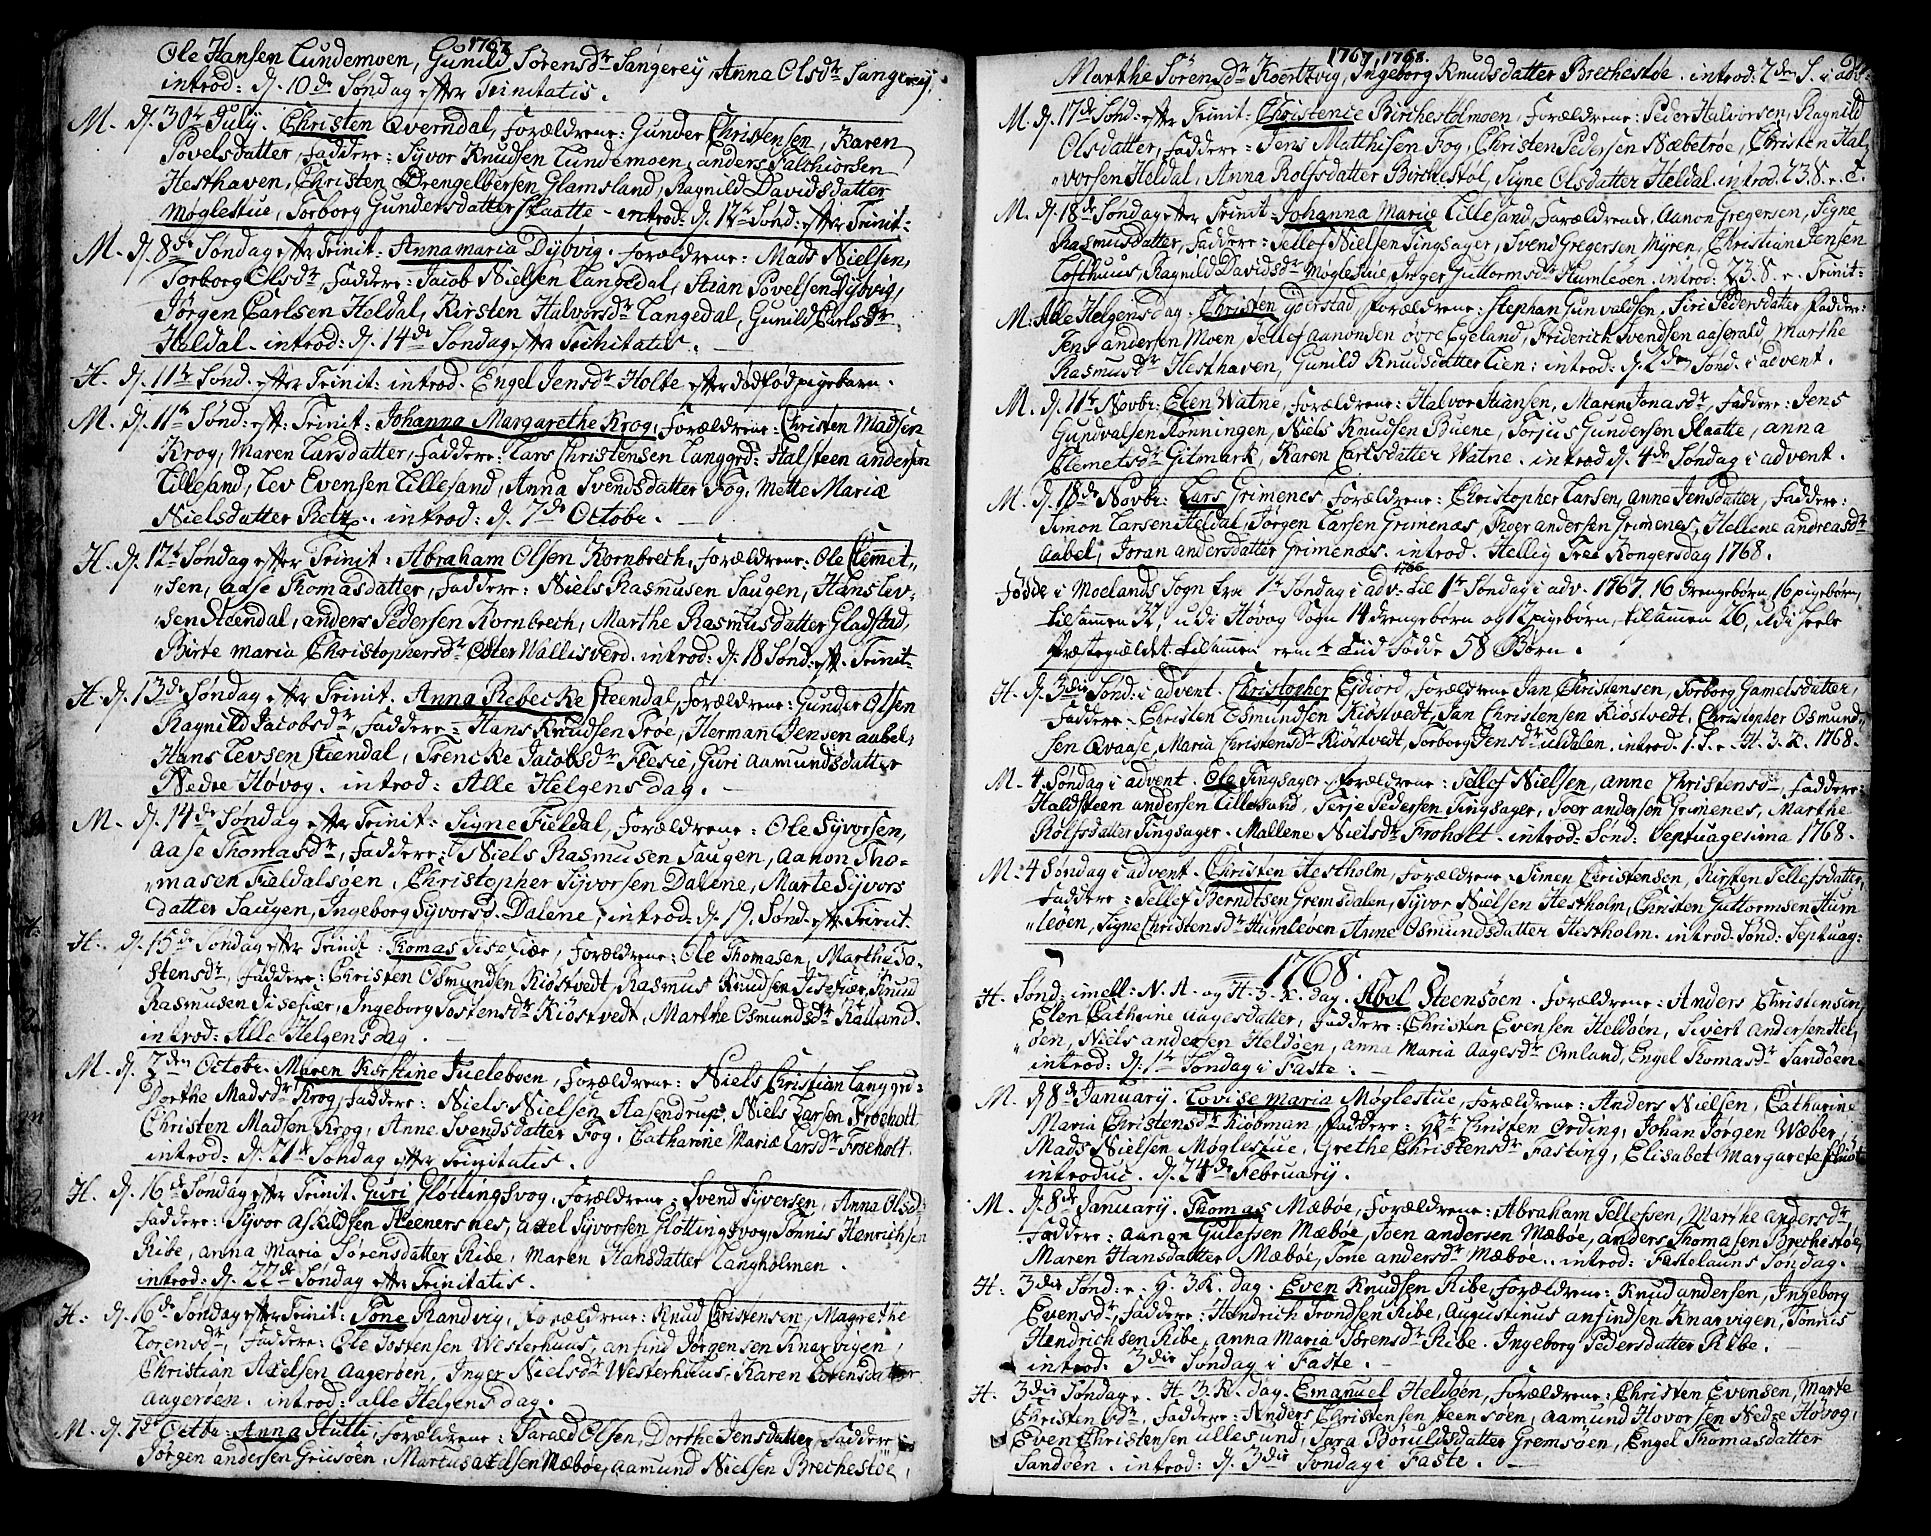 1767
Ole Hansen Lundemoen, Gunild Sörensdr Sangereÿ, Anna Olsdr Sangereÿ,
introd: d. 10de Søndag efter Trinitatis.
M. d. 30te July. Christen Qverndal, Forældrene: Gunder Christensen, Karen
Povelsdatter, Faddere: Syvor Knudsen Lundemoen, anders Falchiorsen
Hesthaven, Christen Engelbersen Glamsland, Ragnild Davidsdatter
Møglestue, Torborg Gundersdatter Skaatte - introd: d. 12te Sønd: efter Trinit:
M. d. 8de Søndag efter Trinit: Anna maria Dybvig. Forældrene: Mads Nielsen,
Torborg Olsdr, Faddere: Jacob Nielsen Langedal, Stian Povelsen Dybvig,
Jørgen Carlsen Heldal, Kirsten Halvorsdr Langedal, Gunild Carlsdr
Heldal - introd: d. 14de Søndag efter Trinitatis.
H. d. 11te Sønd. efter Trinit: introd. Engel Jensdr Holte efter dødfød pigebarn.
M. d. 11te Sønd: eft: Trinit: Johanna Margarethe Krog, Forældrene: Christen Madsen
Krog, Maren Larsdatter, Faddere: Lars Christensen Langgrd: Halsteen andersen
Lillesand, Lev Evensen Lillesand, Anna Svendsdatter Fog, Mette Mariæ
Nielsdatter Retz. introd: d. 7de Octobr.
H. d. 12te Søndag efter Trinit: Abraham Olsen Kornbrech, Forældrene: Ole Clemet-
sen, aase Thomasdatter, Faddere: Niels Rasmusen Saugen, Hans Lev-
sen Steendal, anders Pedersen Kornbrech, Marthe Rasmusdatter Gladstad,
Birte maria Christophersdr Oster Wallisverd. introd: d. 18 Sønd: eft: Trinit:
H. d. 13de Søndag efter Trinit. Anna Rebecke Steendal, Forældrene: Gunder Olsen
Ragnild Jacobsdr, Faddere: Hans Knudsen Trøe, Herman Jensen aabel,
Hans Levsen Steendal, Trencke Jacobsdr Flesie, Guri Aamundsdatter
Nedre Høvog. introd: Alle Helgens dag.
M. d. 14de Søndag efter Trinit: Signe Fieldal, Forældrene: Ole Syvorsen,
Aase Thomasdr, Faddere: Niels Rasmusen Saugen, Aanon Tho-
masen Fieldalsøen, Christopher Syvorsen Dalene, Marte Syvors
datter Saugen, Ingeborg Syvorsd. Dalene, introd: d. 19. Sønd. eft: Trinit.
H. d. 15de Søndag efter Trinit: Thomas Tisefiær, Forældrene: Ole Thomasen, Marthe To-
stensdr, Faddere: Christen Osmundsen Kiöstvedt, Rasmus Knudsen Tisefiær, Knud
Rasmusen Tisefiær, Ingeborg Tostensdr Kiöstvedt, Marthe Osmundsdr Kalland.
introd: Alle Helgens dag.
M. d. 2den Octobr. Maren Kirstine Fueleboen, Forældrene: Niels Christian Langgrd:
Dorthe Madsdr Krog, Faddere: Niels Nielsen Aasendrup, Niels Larsen Froeholt
Christen Madsen Krog, Anne Svendsdatter Fog, Catharine Mariæ Larsdr Froeholt.
introd: d. 21de Søndag efter Trinitatis.
H. d. 16de Søndag efter Trinit. Guri Flöttingsvog, Forældrene: Svend Syversen, Anna Olsdr
Faddere: Syvor Askildsen Steenersnes, Axel Syvorsen Flöttingsvog, Tönnis Henrichsen
Ribe, anna Maria Sörensdatter Ribe, Maren Hansdatter Langholmen.
introd: d. 22de Søndag efter Trinitatis.
H: d. 16de Søndag efter Trinit: Tone Randvig, Forældrene: Knud Christensen, Magrethe
Lorensdr, Faddere: Ole Tostensen Westerhuus, anfind Jørgensen Knarvigen,
Christian Axelsen Aagerøen, Inger Nielsdr Westerhuus, Karen Lorensdatter
Aagerøen. introd: alle Helgens dag.
M. d. 7de Octbr: Anna Stutte, Forældrene: Harald Olsen, Dorthe Jensdatter, Faddere:
Jørgen andersen Griisöen, Martus axelsen Mæbøe, Aamund Nielsen Brechestøe,
1767, 1768.
Marthe Sörensdr Koertvig, Ingeborg Knudsdatter Brechestøe. introd: 2den S. i adv:
M. d. 17de Sønd: efter Trinit: Christence Birchestolmoen, Forældrene: Peder Halvorsen, Ragnild
Olsdatter, Faddere: Jens Matthisen Fog, Christen Pedersen Næbetrøe, Christen Hal-
vorsen Heldal, Anna Rolfsdatter Birchestøl, Signe Olsdatter Heldal. introd. 23. S. e. T.
M. d. 18de Søndag efter Trinit: Johanna Maria Lillesand, Forældrene, Aanon Gregersen, Signe
Rasmusdatter, Faddere: Tellef Nielsen Tingsager, Svend Gregersen Myren, Christian Jensen
Lofthuus, Ragnild Davidsdr Møglestue, Inger Guttormsdr Humleøen. introd: 23. S. e. Trinit:
M: Alle Helgensdag. Christen Ejderstad, Forældrene: Stephan Gunvaldsen, Siri Pedersdatter, Faddere:
Jens andersen Moen, Tellef Aanonsen ovre Egeland, Friderich Svendsen aaserald, Marthe
Rasmusdr Hesthaven, Gunild Knudsdatter Lien: introd: d. 2den Sønd: i advent.
M. d. 11te Novbr: Elen Watne, Forældrene: Halvor Stiansen, Maren Jonasdr, Faddere: Jens
Gundvalsen Rønningen, Niels Knudsen Buene, Torjus Gundersen Skaatte, anna
Clemetsdr Gitmark, Karen Carlsdatter Watne. introd d. 4de Søndag i advent.
M. d. 18de Novbr: Lars Grimenes, Forældrene: Christopher Larsen, anne Jensdatter, Faddere:
Simon Larsen Heldal, Jørgen Larsen Grimenæs, Roer andersen Grimenes, Hellene andreasdr
aabel, Joran andersdatter Grimenæs. introd. Hellig Tree Kongersdag 1768.
Fødde i Moelands Sogn fra 1te Søndag i adv: 1766 til 1te Søndag i adv. 1767. 16 drengebörn, 16 pigebörn,
tilsammen 32, udi Høvog Sogn 14 drengebørn og 12 pigebørn, tilsamen 26, udi heele
Præstegiældet tilsammen Fødde 58 Börn.
H. d. 3die Sønd: i advent. Christopher Ejdiord, Forældrene Jan Christensen, Torborg Gamelsdatter,
Faddere - Christen Osmundsen Kiöstvedt, Jan Christensen Kiöstvedt, Christopher Osmund-
sen Qvaase, Maria Christensdr Kiöstvedt, Torborg Jensdr Uldalen. introd. 1. S. e. H. 3. K. 1768.
M. 4. Søndag i advent. Ole Tingsager, Forældrene: Tellef Nielsen, anne Christensdr, Faddere:
Haldsteen andersen Lillesand, Terje Pedersen Tingsager, Joer andersen Grimenes, Marthe
Rolfsdatter Tingsager. Mallene Nielsdr Froholt. introd: Sønd: Septuagesima 1768.
M: 4 Søndag i advent. Christen Hestholm, Forældrene: Simen Christensen, Kirsten Tellefsdatter,
Faddere: Tellef Berndtsen Gremsdalen, Syvor Nielsen Hestholm, Christen Guttormsen Hum-
leøen, Signe Christensdr Humleøen Anne Osmundsdatter Hestholm. introd. Sønd: Septuag:
1768.
H. Sønd: imell: N. A. og H. 3. K. dag. Abel Steensøen. Forældrene: Anders Christensen,
Elen Cathrine Aagesdatter, Faddere: Christen Evensen Heldøen, Sivert Andersen Hel-
døen, Niels andersen Heldøen, anna Maria Aagesdr Omland, Engel Thomasdr Sandøen
introd: d. 1te Søndag i Faste.
M. d. 8de January. Lovise Maria Møglestue, Forældrene: Anders Nielsen, Catharine
Maria Christensdr Kiöbman, Faddere: Hr Christen Ording, Johan Jørgen Wæber,
Mads Nielsen Møglestue, Grethe Christensdr Fasting, Elisabet Margarete
introduc. d. 24de February.
M. d. 8de January. Thomas Mæbøe, Forældrene: Abraham Tellefsen, Marthe Andersdr
Faddere: aanon Gulofsen Mæbøe, Joen andersen Mæbøe, anders Thomasen Brechestøe,
Maren Hansdatter Mæbøe, Tone andersdr Mæbøe. introd: Fastelauns Søndag.
H: 3die Sønd: e. H. 3. K. dag. Even Knudsen Ribe, Forældrene: Knud andersen, Ingeborg
Evensdr, Faddere: Hendrich Trondsen Ribe, Augustinus anfindsen Knarvigen, Tönnis
Hendrichsen Ribe, anna Maria Sörensdr Ribe. Ingeborg Pedersdatter Ribe.
introd: 3die Søndag i Faste.
H. 3die Søndag e. H. 3. K. dag. Emanuel Heldøen, Forældrene: Christen Evensen, Marte
Christensdr, Faddere: Anders Christensen Steensøen, Aamund Hovorsen Nedre Høvog,
Even Christensen Ullesund, Sara Böruldsdatter Gremsøen, Engel Thomasdatter
Sandøen. introd: d. 3die Søndag i Faste.